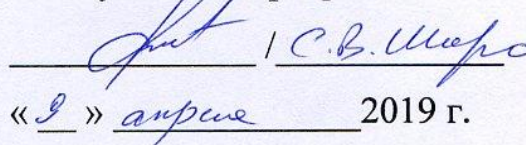 / С.В. Шаро
«9» апреля 2019 г.